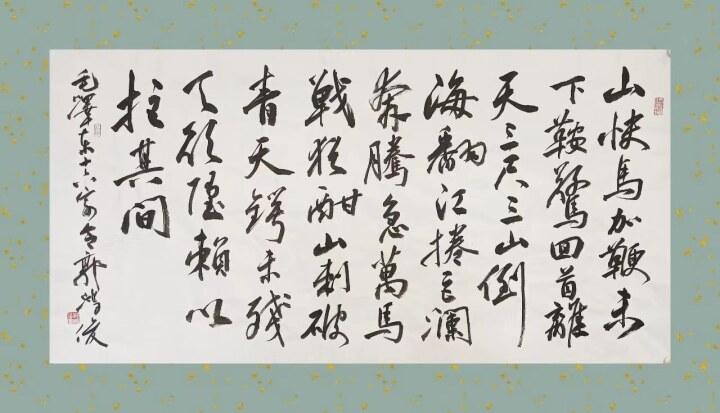 山快馬加鞭未
下鞍驚回首離
天三尺三山倒
海翻江捲巨瀾
奔騰急萬馬
戰犹酣山刺破
青天鍔未殘
天欲墮賴以
拄其間
毛澤東十六字令郭